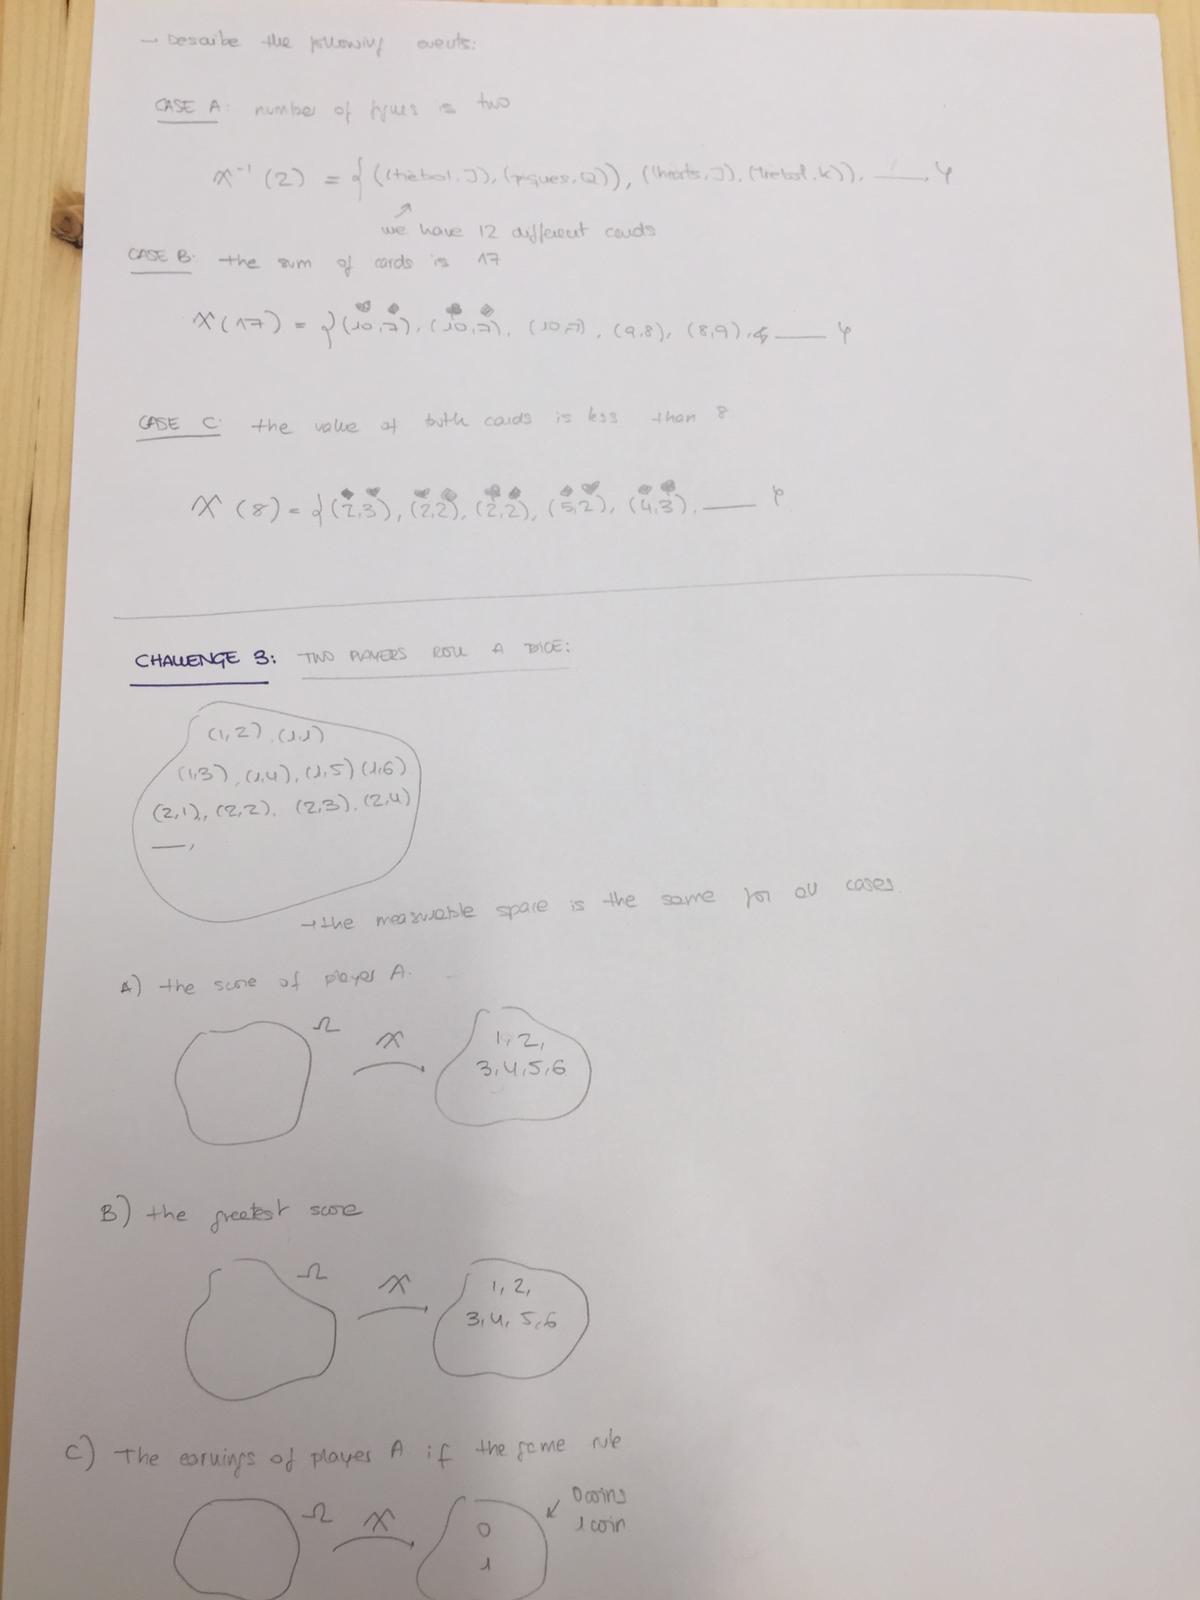 → Describe the following events:
CASE A: number of figues is two
X⁻¹(2) = {((trebol, J), (piques, Q)), (hearts, J), (trebol, K)), ——, }
we have 12 different cards
CASE B: the sum of cards is 17
X(17) = {(10,7), (10,7), (10,7), (9,8), (8,9), —— }
CASE C: the value of both cards is less than 8
X(8) = {(2,3), (2,2), (2,2), (5,2), (4,3), —— }
CHALLENGE 3: TWO PLAYERS ROLL A DICE:
(1,2), (1,1)
(1,3), (1,4), (1,5) (1,6)
(2,1), (2,2), (2,3), (2,4)
—,
→ the measurable space is the same for all cases.
A) the score of player A.
Ω X 1, 2,
3, 4, 5, 6
B) the greatest score
Ω X 1, 2,
3, 4, 5, 6
C) The earnings of player A if the game rule
0 coins
Ω X 0 1 coin
1